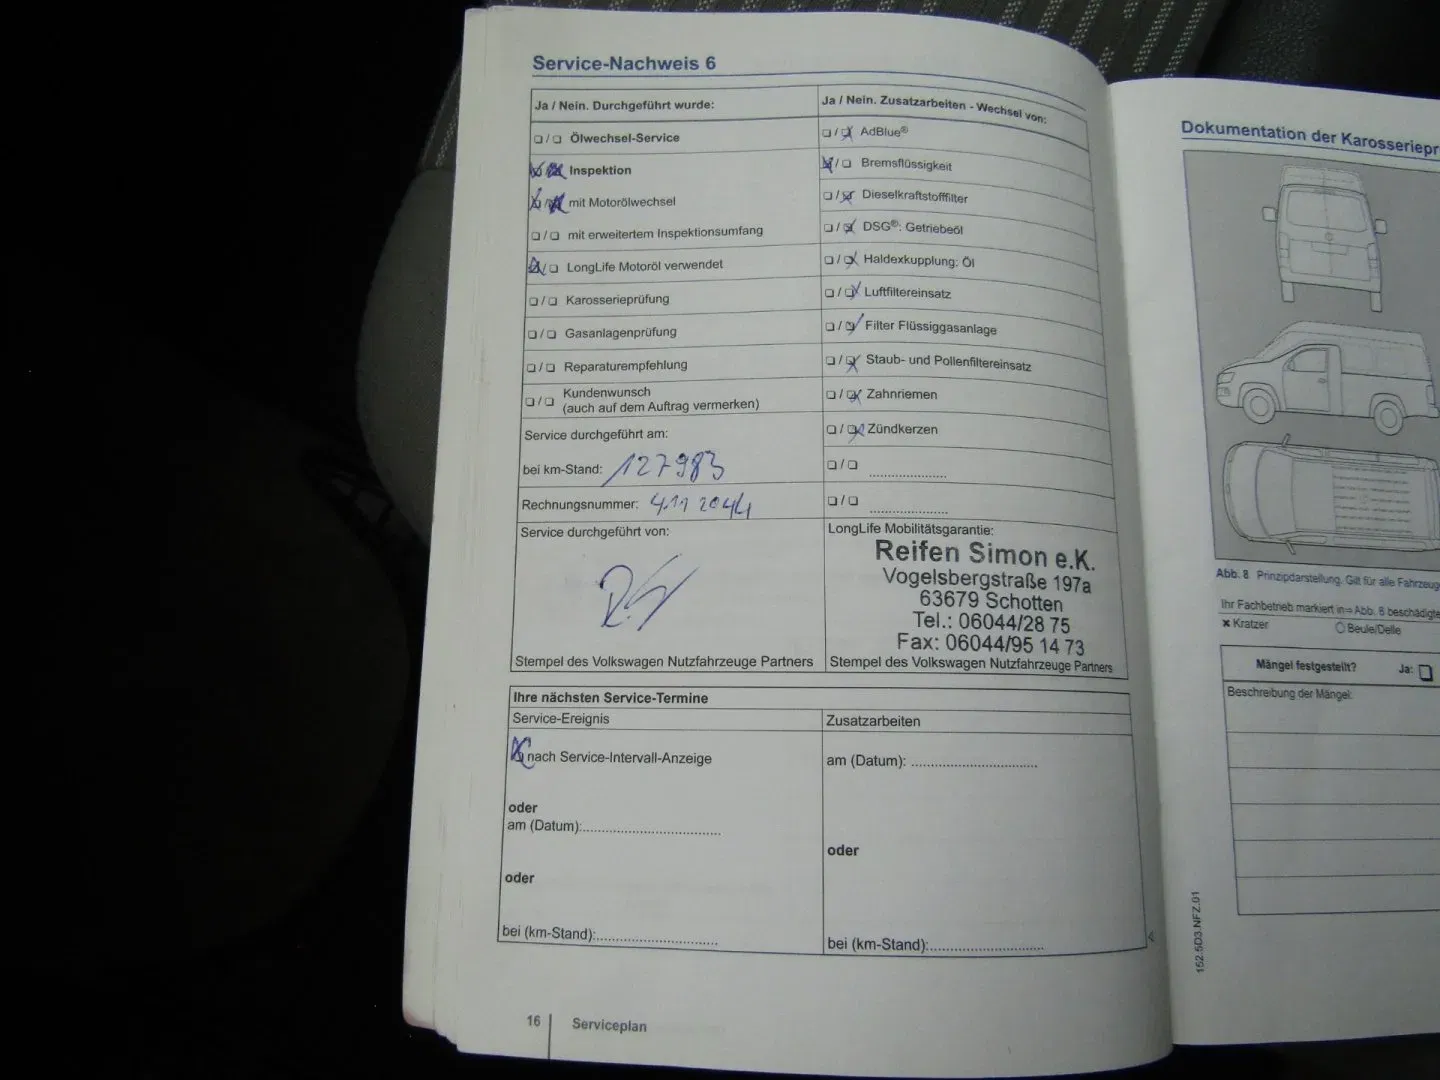 Service-Nachweis 6
Ja / Nein. Durchgeführt wurde:
❑ / ❑ Ölwechsel-Service
❑ / ❑ Inspektion
❑ / ❑ mit Motorölwechsel
❑ / ❑ mit erweitertem Inspektionsumfang
❑ / ❑ LongLife Motoröl verwendet
❑ / ❑ Karosserieprüfung
❑ / ❑ Gasanlagenprüfung
❑ / ❑ Reparaturempfehlung
❑ / ❑ Kundenwunsch
(auch auf dem Auftrag vermerken)
Service durchgeführt am:
bei km-Stand: 127983
Rechnungsnummer:
Service durchgeführt von:
Stempel des Volkswagen Nutzfahrzeuge Partners
Ja / Nein. Zusatzarbeiten - Wechsel von:
❑ / ❑ AdBlue®
❑ / ❑ Bremsflüssigkeit
❑ / ❑ Dieselkraftstofffilter
❑ / ❑ DSG®: Getriebeöl
❑ / ❑ Haldexkupplung: Öl
❑ / ❑ Luftfiltereinsatz
❑ / ❑ Filter Flüssiggasanlage
❑ / ❑ Staub- und Pollenfiltereinsatz
❑ / ❑ Zahnriemen
❑ / ❑ Zündkerzen
❑ / ❑ ....................
❑ / ❑ ....................
LongLife Mobilitätsgarantie:
Reifen Simon e.K.
Vogelsbergstraße 197a
63679 Schotten
Tel.: 06044/28 75
Fax: 06044/95 14 73
Stempel des Volkswagen Nutzfahrzeuge Partners
Ihre nächsten Service-Termine
Service-Ereignis
nach Service-Intervall-Anzeige
oder
am (Datum):...................................
oder
bei (km-Stand):...............................
Zusatzarbeiten
am (Datum): ................................
oder
bei (km-Stand):.............................
16 Serviceplan
Dokumentation der Karosseriepr
Abb. 8 Prinzipdarstellung. Gilt für alle Fahrzeug
Ihr Fachbetrieb markiert in ⇒ Abb. 8 beschädigte
× Kratzer ○ Beule/Delle
Mängel festgestellt? Ja: ❑
Beschreibung der Mängel:
152.5D3.NFZ.01